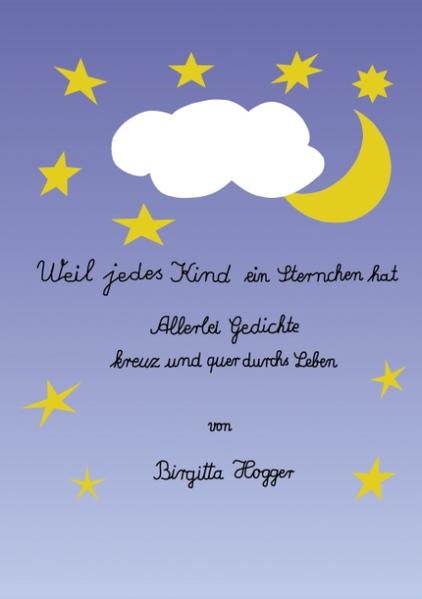 Weil jedes Kind ein Sternchen hat
Allerlei Gedichte
kreuz und quer durchs Leben
von
Birgitta Hogger